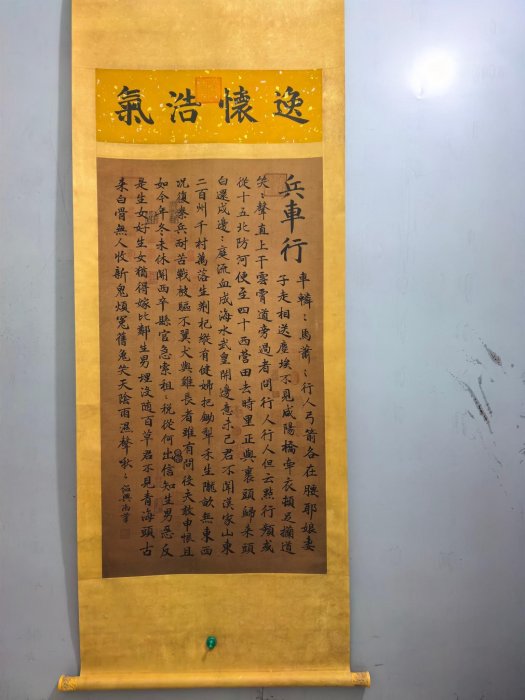 逸懷浩氣
兵車行
車轔〻馬蕭〻行人弓箭各在腰耶娘妻
子走相送塵埃不見咸陽橋牽衣頓足攔道
哭〻聲直上干雲霄道旁過者問行人行人但云點行頻或
從十五北防河便至四十西營田去時里正與裹頭歸來頭
白還戍邊〻庭流血成海水武皇開邊意未已君不聞漢家山東
二百州千村萬落生荊杞縱有健婦把鋤犂禾生隴畝無東西
況復秦兵耐苦戰被驅不異犬與雞長者雖有問役夫敢申恨且
如今年冬未休關西卒縣官急索租〻稅從何出信知生男惡反
是生女好生女猶得嫁比鄰生男埋沒隨百草君不見青海頭古
來白骨無人收新鬼煩冤舊鬼哭天陰雨濕聲啾〻紹興